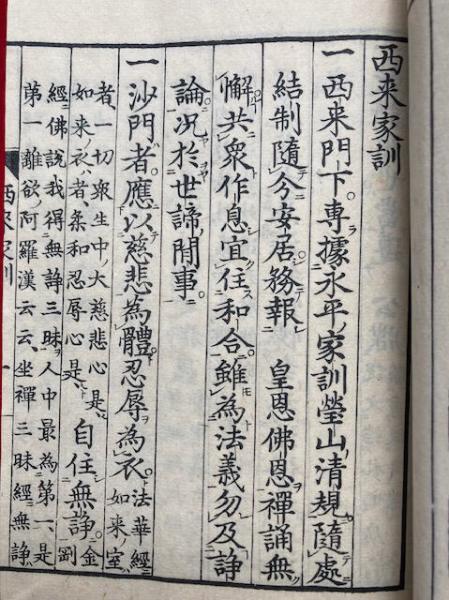 西来家訓
一西来門下專據永平家訓瑩山清規隨處
結制隨分安居務報　皇恩佛恩禪誦無
懈共衆作息宜住和合雖為法義勿及諍
論況於世諦閒事
一沙門者應以慈悲為體忍辱為衣法華經
如来室
者一切衆生中大慈悲心是
如来衣者柔和忍辱心是
自住無諍金
剛
經佛說我得無諍三昧人中最為第一是
第一離欲阿羅漢云云坐禪三昧經無諍
西來家訓
一